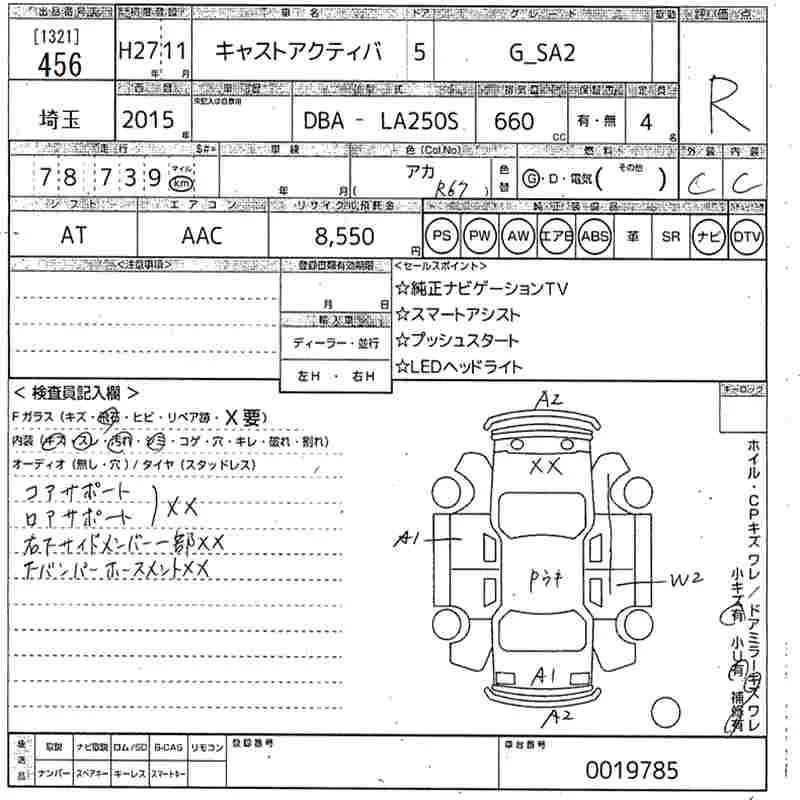 出品番号 初度登録 車名 ドア グレード 駆動 評価点
[1321]
456 H27 11 キャストアクティバ 5 G_SA2 R
年 月
西暦 車歴 型式 排気量 保証書 定員
未記入は自家用
埼玉 2015年 DBA - LA250S 660cc 有・無 4名
走行 $#* 車検 色(Col.No) 燃料 外装 内装
78,739 マイル km 年 月 アカ (R67) 色替 G・D・電気( その他 ) C C
シフト エアコン リサイクル預託金 純正装備品
AT AAC 8,550円 PS PW AW エアB ABS 革 SR ナビ DTV
<注意事項> 登録書類有効期限 <セールスポイント>
月 日
☆純正ナビゲーションTV
輸入車
☆スマートアシスト
ディーラー・並行
☆プッシュスタート
左H ・ 右H
☆LEDヘッドライト
< 検査員記入欄 > キーロック
Fガラス(キズ・飛石・ヒビ・リペア跡・X要)
内装(キズ・スレ・汚れ・シミ・コゲ・穴・キレ・破れ・割れ)
オーディオ(無し・穴)/タイヤ(スタッドレス)
コアサポート
ロアサポート ) XX
右下サイドメンバー一部XX
下バンパーホースメントXX
A2
XX
A1
Pウキ
W2
A1
A2
ホイル・CPキズ ワレ/ドアミラーキズ ワレ
小キズ有 小U有 補修有
後送品 取説 ナビ取説 ロム/SD B-CAS リモコン 登録番号 車台番号
ナンバー スペアキー キーレス スマートキー 0019785